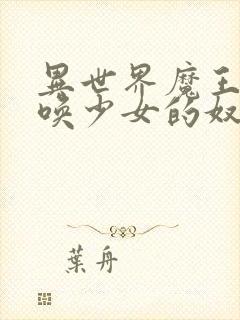 異世界魔王
唤少女的奴
葉舟